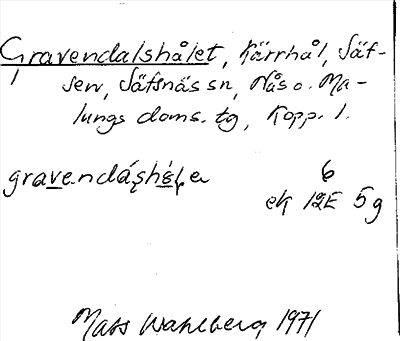 Gravendalshålet, Kärrhål, Säf-
sen, Säfsnäs sn, Nås o. Ma-
lungs doms. tg, Kopp. l.
gravendáshóle
6
ek 12E 5g
Mats Wahlberg 1971